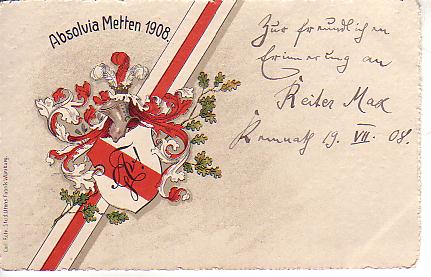 Absolvia Metten 1908.
Zur freundlichen
Erinnerung an
Reiter Max
Kemnath 19. VII. 08.